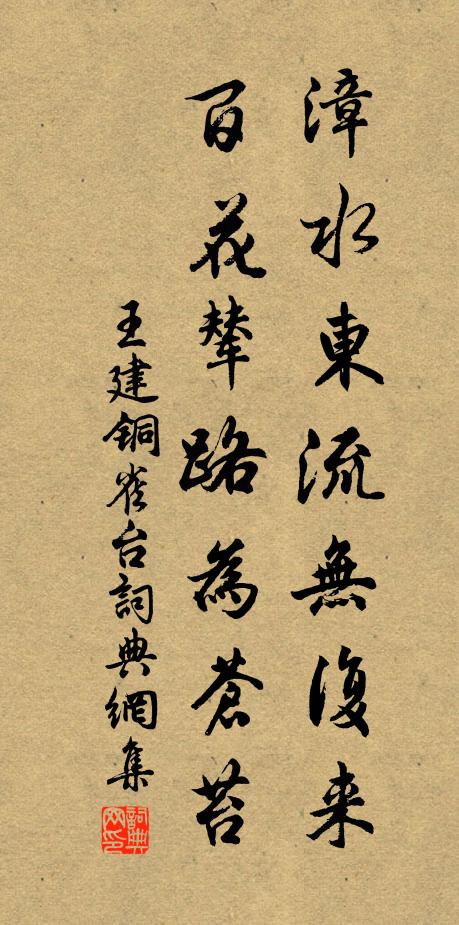 漳水東流無復来
百花輦路為蒼苔
王建铜雀台詞典網集
詞典网印